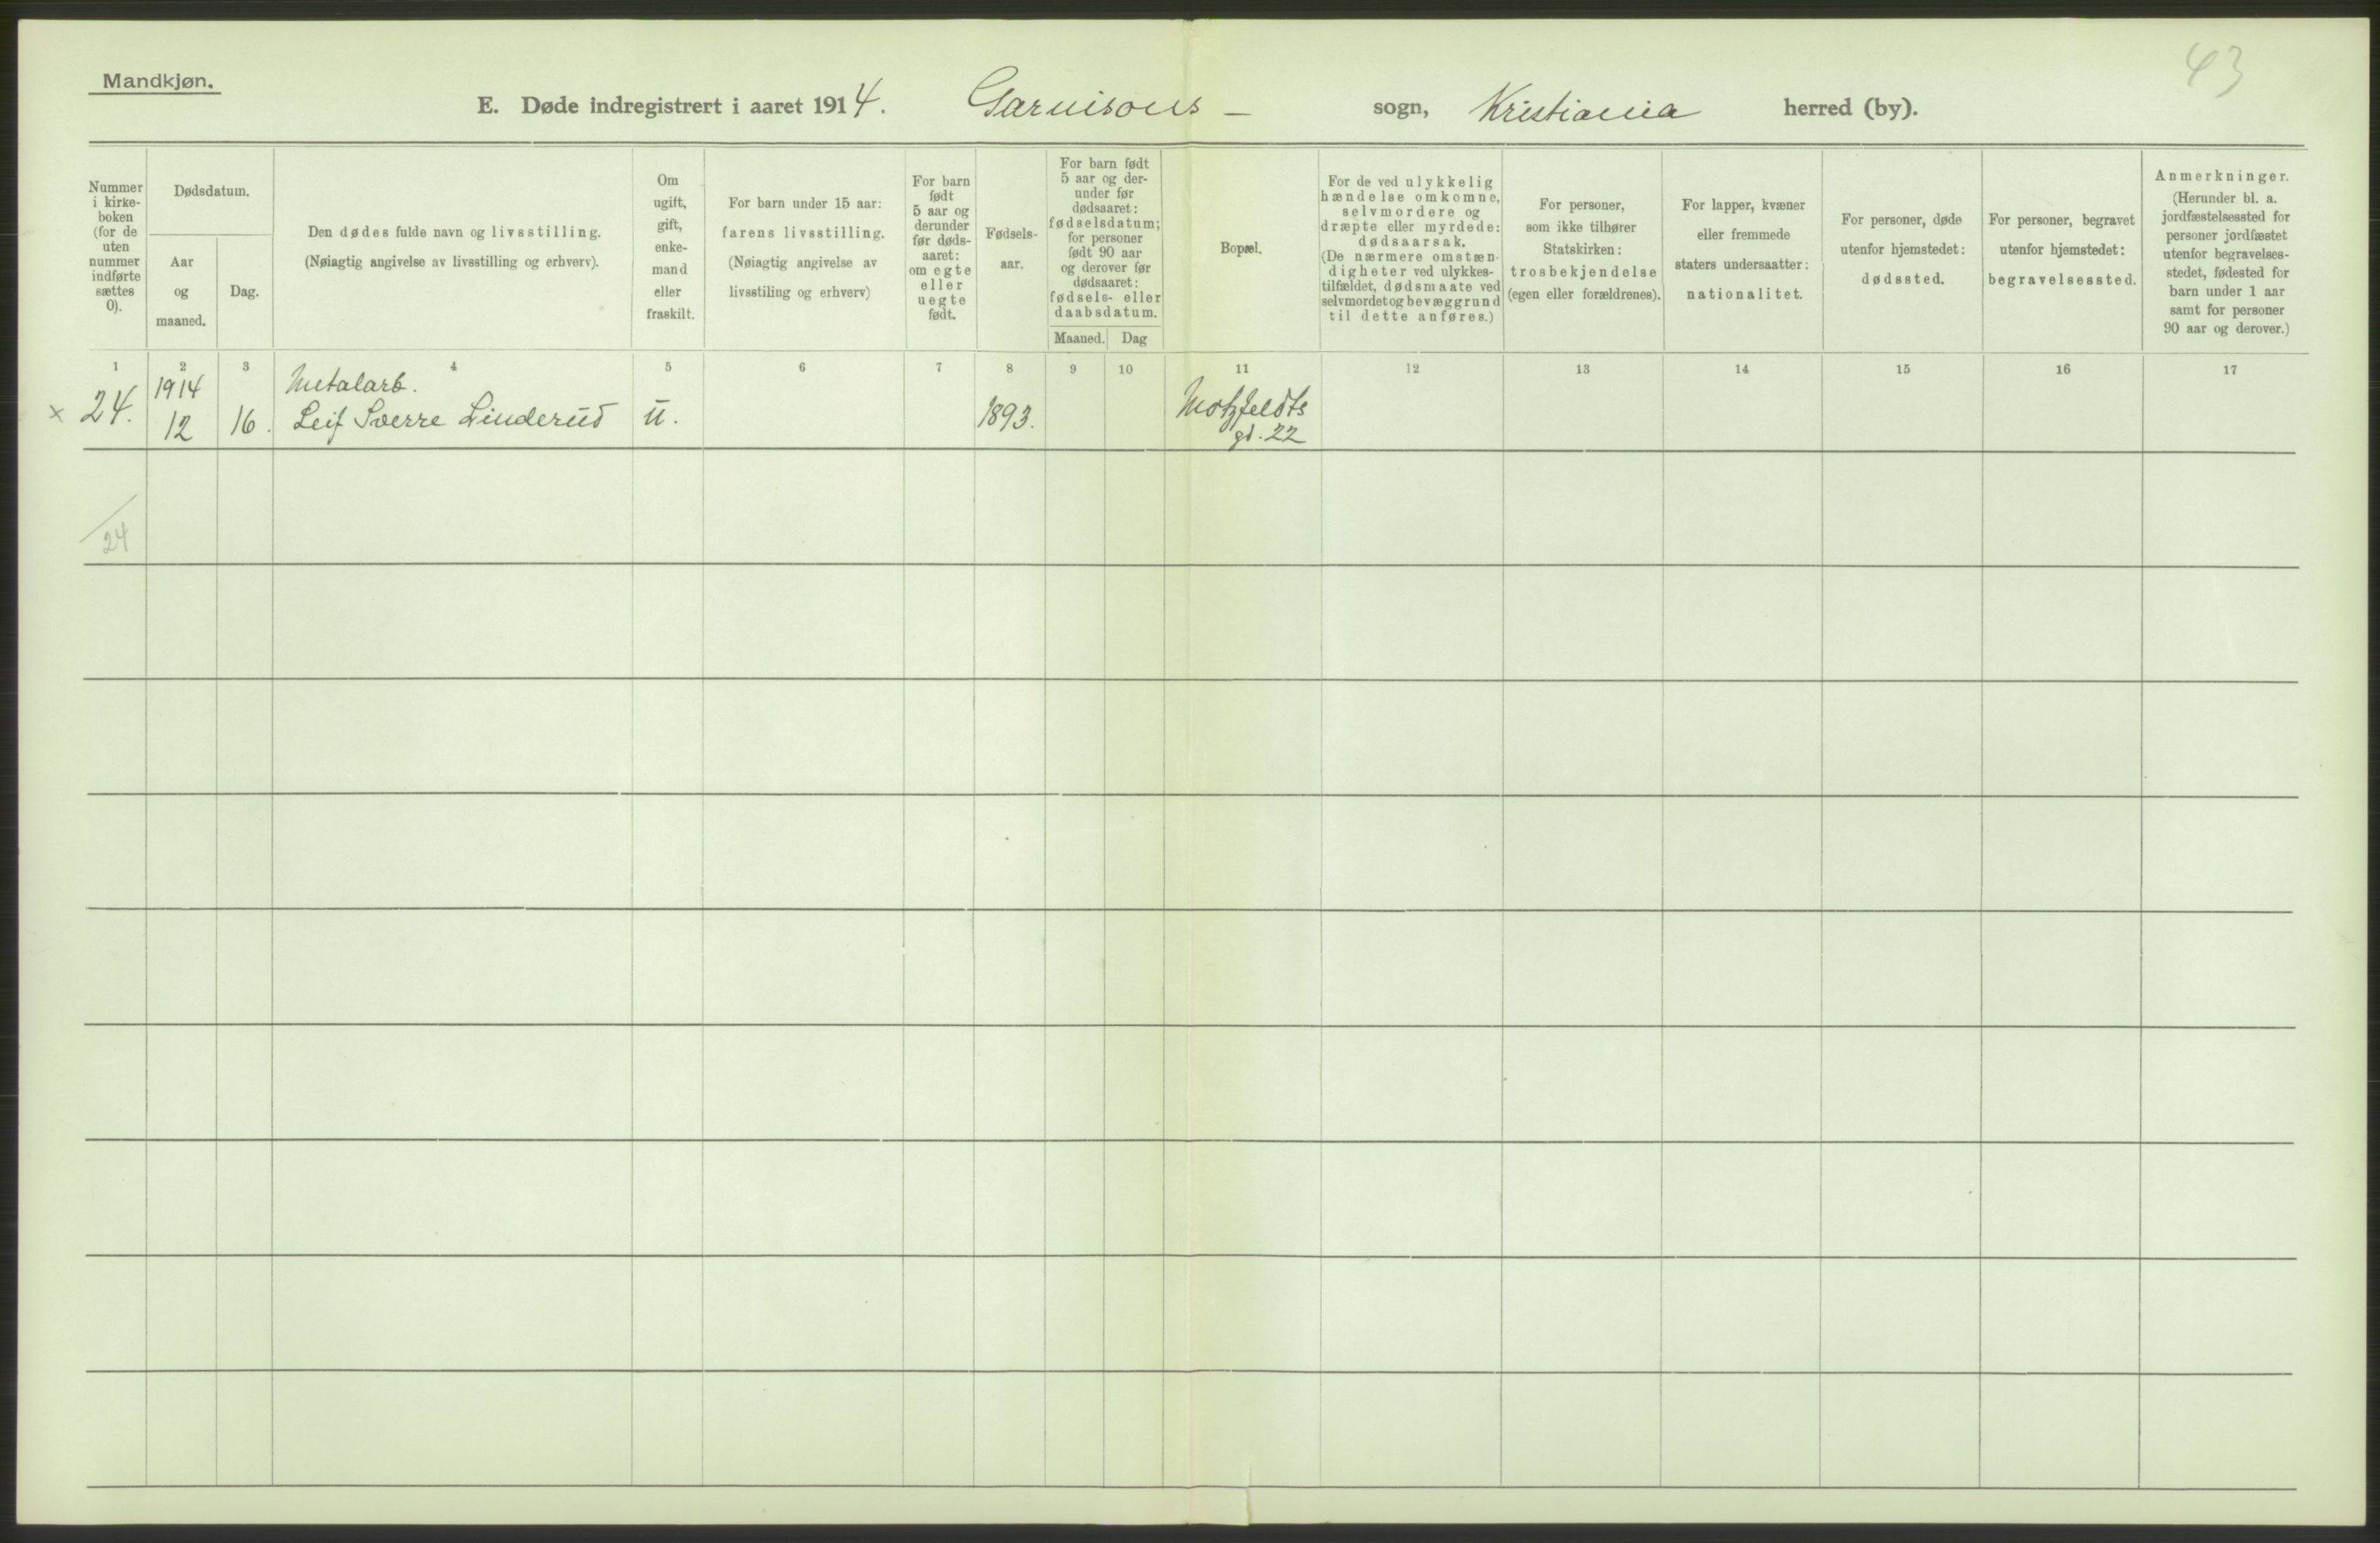 43
Mandkjøn.
E. Døde indregistrert i aaret 1914. Garnisons - sogn, Kristiania herred (by).
Nummer
i kirke-
boken
(for de
uten
nummer
indførte
sættes
0).
Dødsdatum.
Aar
og
maaned.
Dag.
Den dødes fulde navn og livsstilling.
(Nøiagtig angivelse av livsstilling og erhverv).
Om
ugift,
gift,
enke-
mand
eller
fraskilt.
For barn under 15 aar:
farens livsstilling.
(Nøiagtig angivelse av
livsstiling og erhverv)
For barn
født
5 aar og
derunder
før døds-
aaret:
om egte
eller
uegte
født.
Fødsels-
aar.
For barn født
5 aar og der-
under før
dødsaaret:
fødselsdatum;
for personer
født 90 aar
og derover før
dødsaaret:
fødsels- eller
daabsdatum.
Maaned. Dag
Bopæl.
For de ved ulykkelig
hændelse omkomne,
selvmordere og
dræpte eller myrdede:
dødsaarsak.
(De nærmere omstæn-
digheter ved ulykkes-
tilfældet, dødsmaate ved
selvmordet og bevæggrund
til dette anføres.)
For personer,
som ikke tilhører
Statskirken:
trosbekjendelse
(egen eller forældrenes).
For lapper, kvæner
eller fremmede
staters undersaatter:
nationalitet.
For personer, døde
utenfor hjemstedet:
dødssted.
For personer, begravet
utenfor hjemstedet:
begravelsessted.
Anmerkninger.
(Herunder bl. a.
jordfæstelsessted for
personer jordfæstet
utenfor begravelses-
stedet, fødested for
barn under 1 aar
samt for personer
90 aar og derover.)
1 2 3 4 5 6 7 8 9 10 11 12 13 14 15 16 17
1914 Metalarb. Motzfeldts
x 24. 12 16. Leif Sverre Linderud u. 1893. gt. 22
24